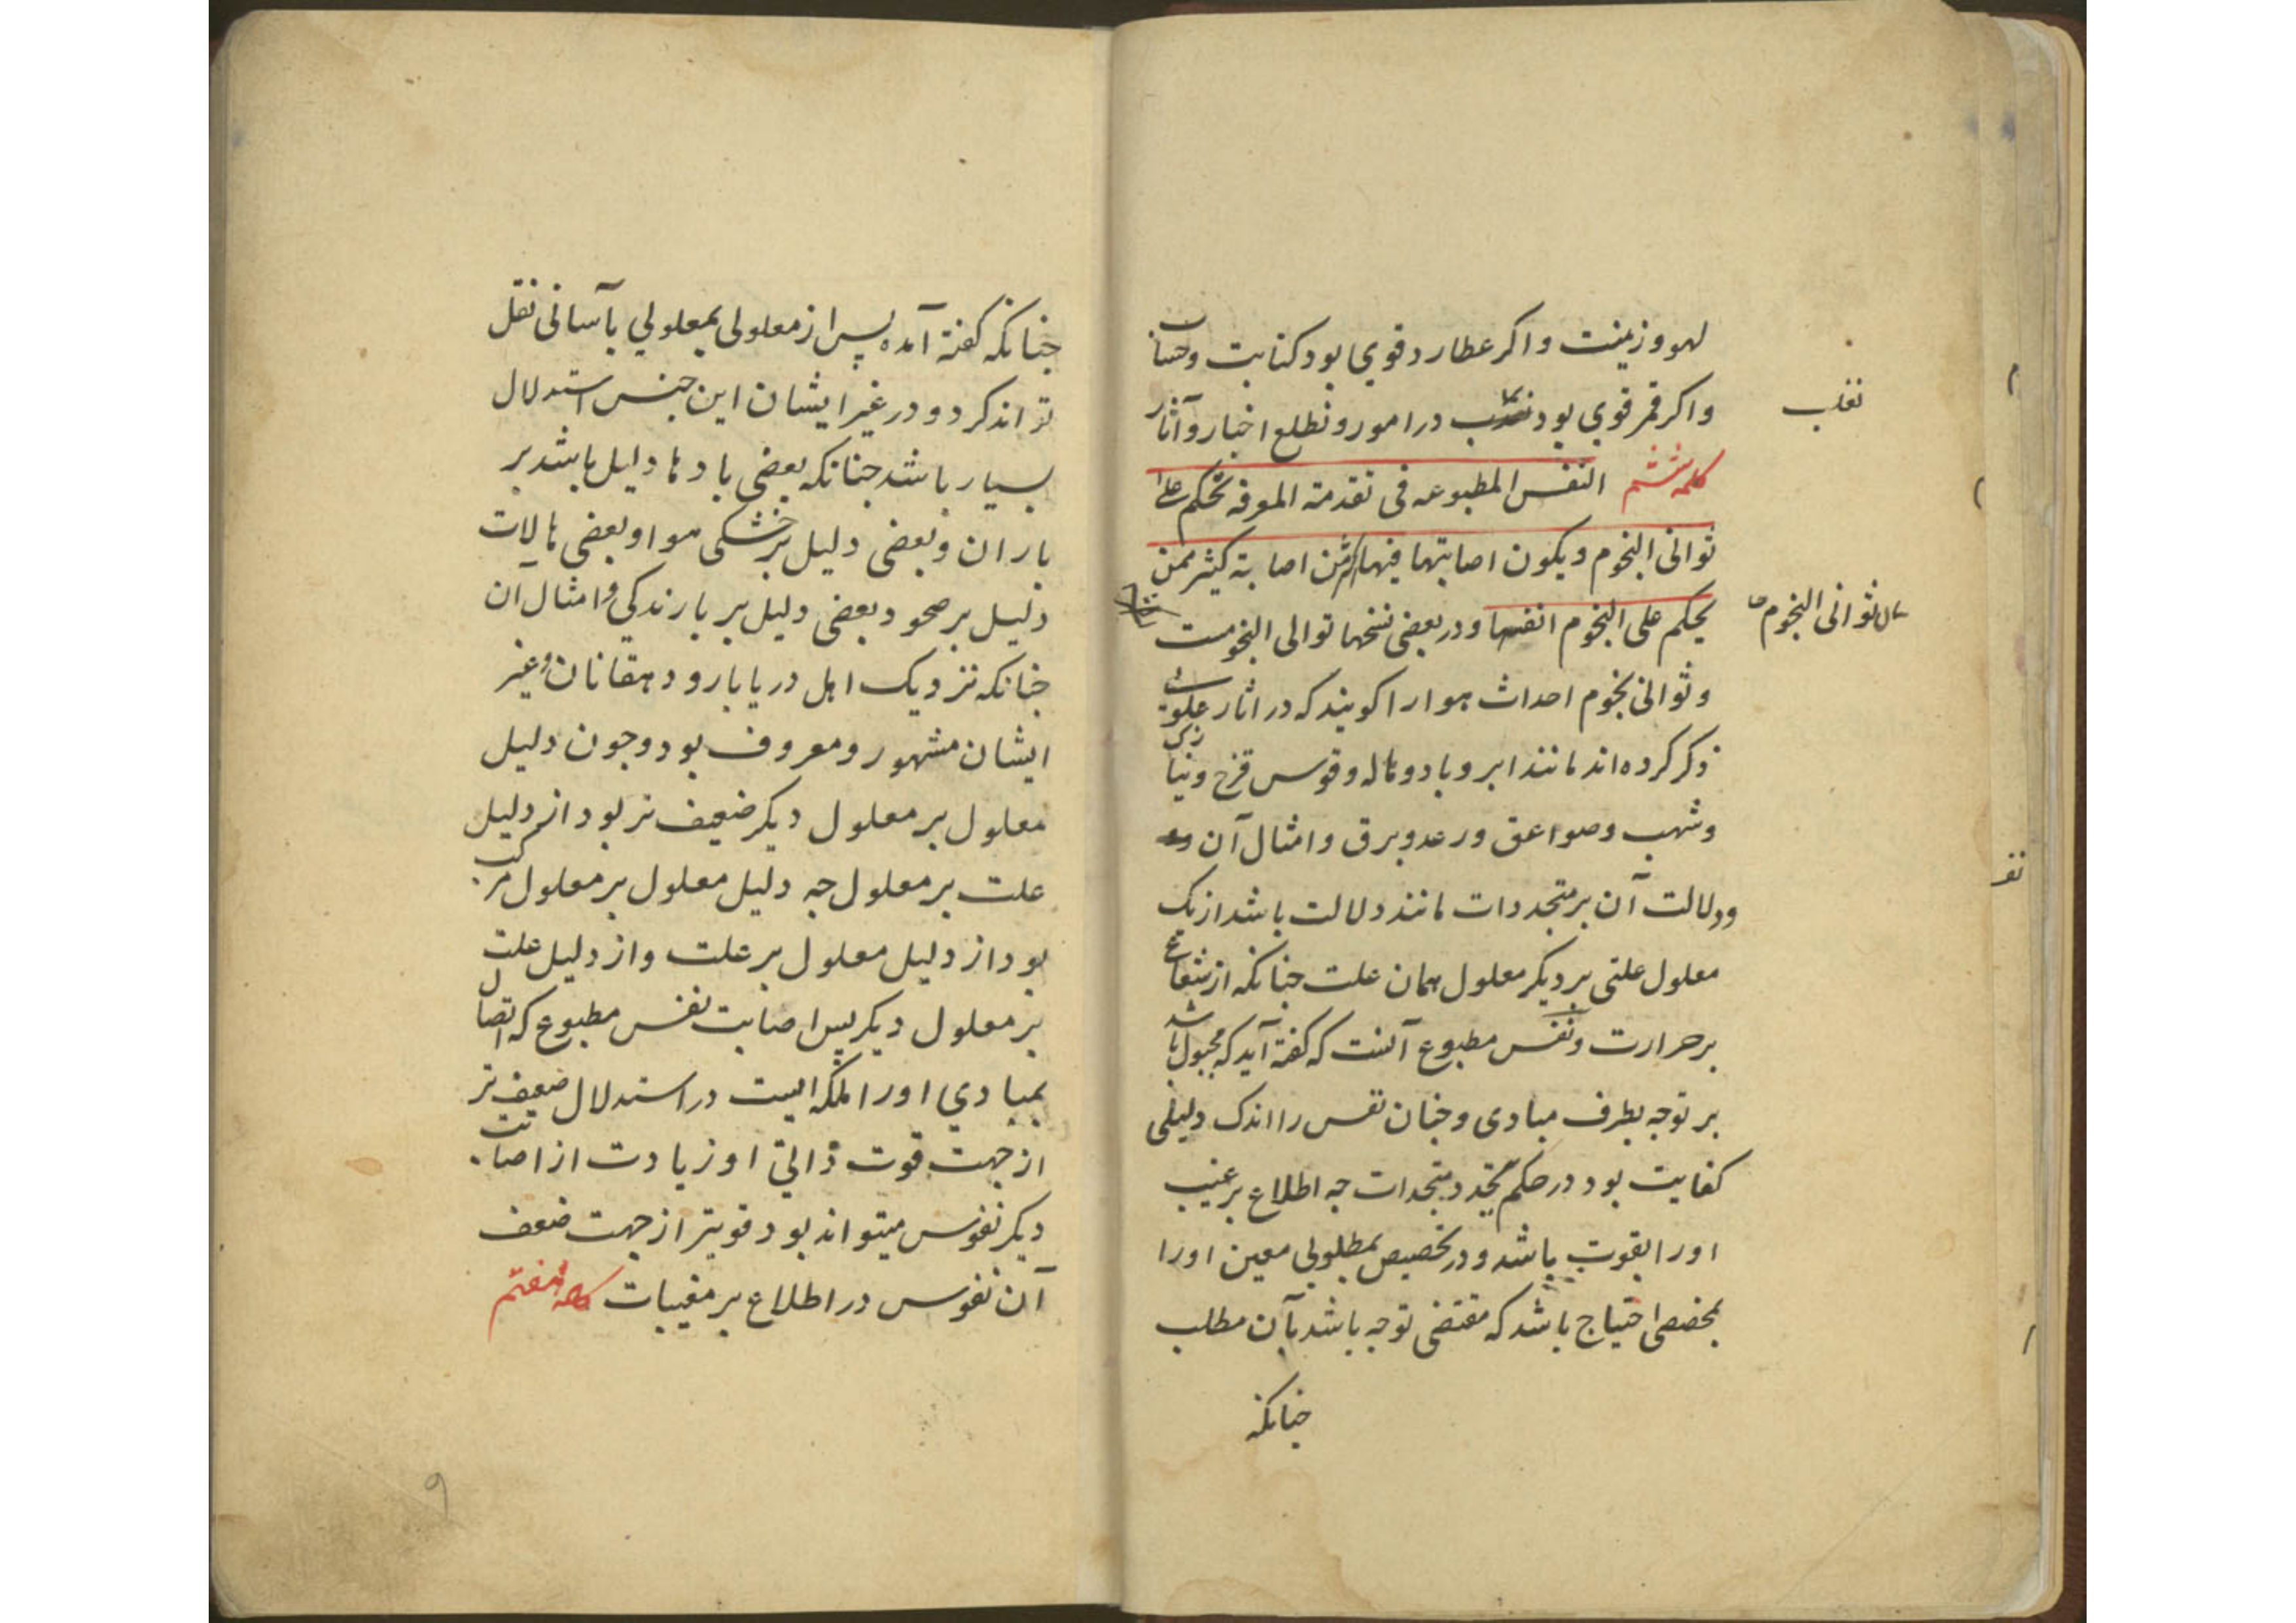 لهو و زینت و اکر عطارد قوی بود کتابت و حساب
و اکر قمر قوی بود در امور و تطلع اخبار و آثار
تقلب
کلمه ششم النفس المطبوعه فی تقدمة المعرفه تحکم علی
ثوانی النجوم و یکون اصابتها فیها اکثر من اصابة کثیر ممن
یحکم علی النجوم انفسها و در بعضی نسخها توالی النجومست
ثوانی النجوم
و ثوانی نجوم احداث هوا را کویند که در اثار علوی
ذکر کرده‌اند مانند ابر و باد و هاله و قوس قزح و نیازک
و شهب و صواعق و رعد و برق و امثال آن
و دلالت آن بر متجددات مانند دلالت باشد از یک
معلول علتی بر دیکر معلول همان علت جنانکه از شعاع
بر حرارت و نفس مطبوع آنست که کفته آید که مجبول باشد
بر توجه بطرف مبادی و جنان نفس را اندک دلیلی
کفایت بود در حکم بتجدد متجددات جه اطلاع بر غیب
او را بقوت باشد و در تخصیص بمطلوبی معین او را
بمخصصی احتیاج باشد که مقتضی توجه باشد بآن مطلب
جنانکه
جنانکه کفته آمده پس از معلولی بمعلولی بآسانی نقل
تواند کرد و در غیر ایشان این جنس استدلال
بسیار باشد جنانکه بعضی بادها دلیل باشد بر
باران و بعضی دلیل بر خشکی هوا و بعضی هالات
دلیل بر صحو و بعضی دلیل بر بارندکی و امثال آن
جنانکه نزدیک اهل دریابار و دهقانان و غیر
ایشان مشهور و معروف بود و جون دلیل
معلول بر معلول دیکر ضعیف تر بود از دلیل
علت بر معلول جه دلیل معلول بر معلول مرکب
بود از دلیل معلول بر علت و از دلیل علت
بر معلول دیکر پس اصابت نفس مطبوع که اتصال
بمبادی او را ملکه ایست در استدلال ضعیف تر
از جهت قوت ذاتی او زیادت از اصابت
دیکر نفوس میتواند بود قویتر از جهت ضعف
آن نفوس در اطلاع بر مغیبات کلمه هفتم
۹